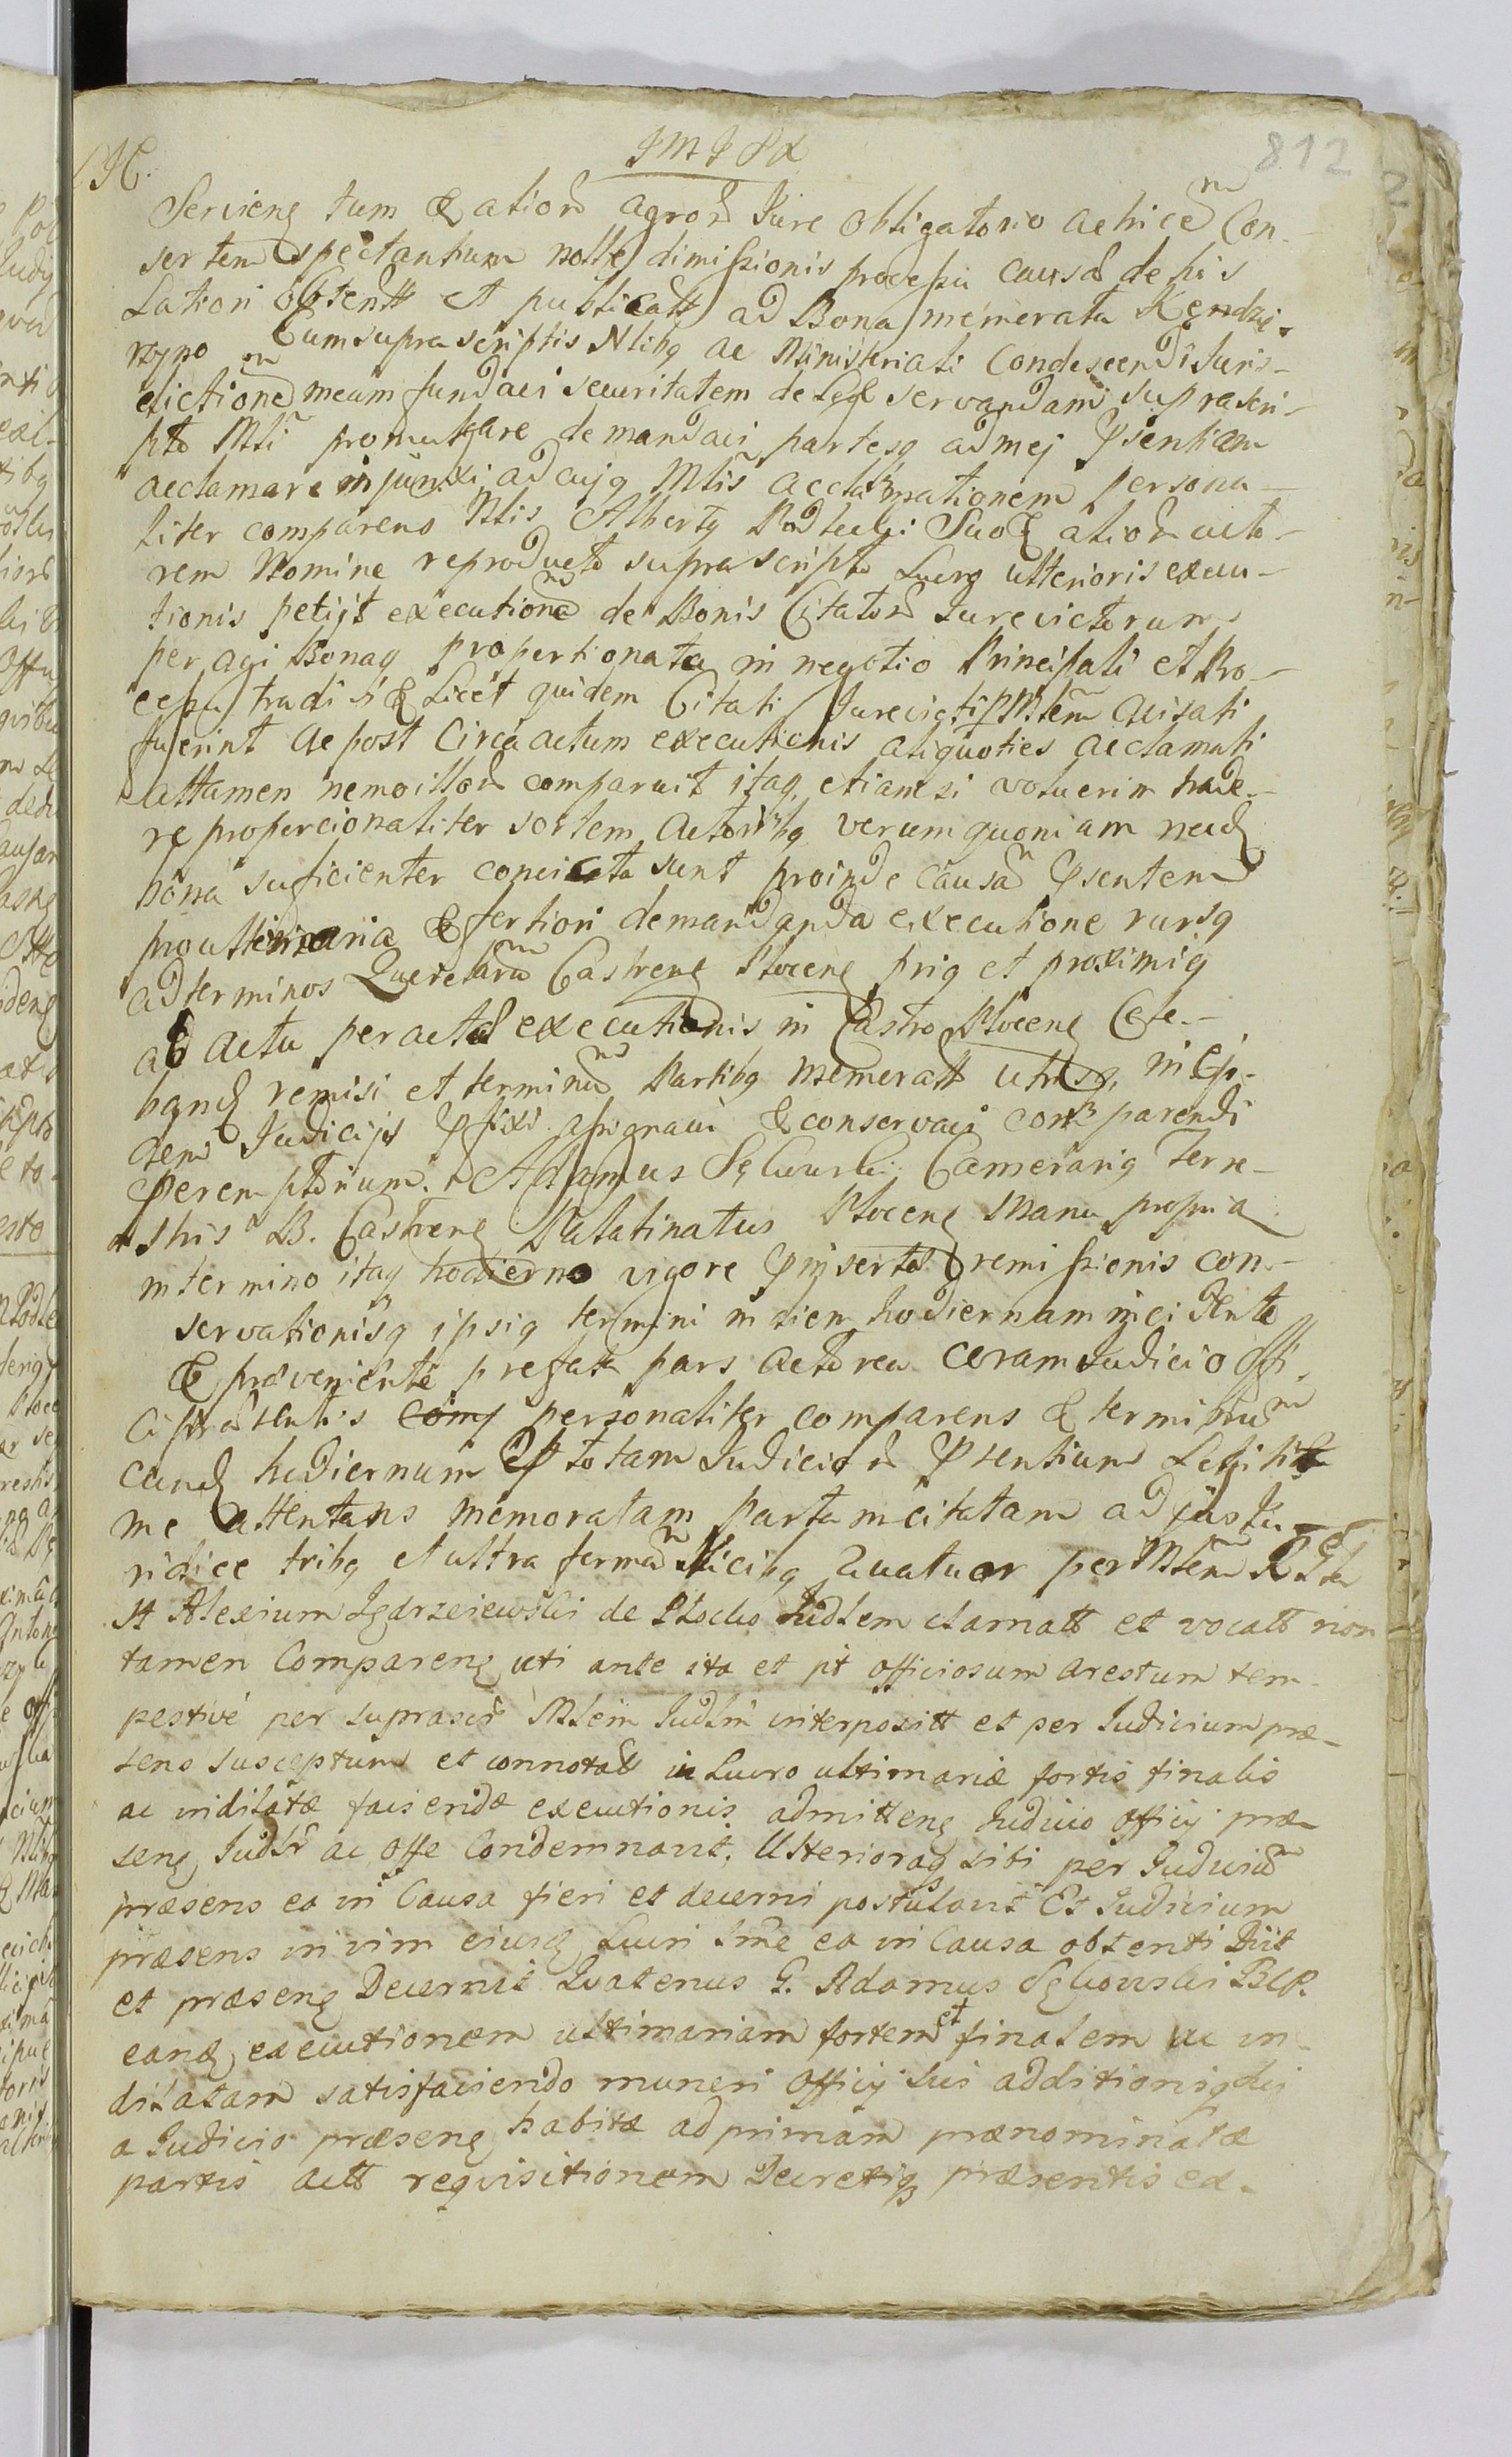 812
Serviens tum & alior agror Jure obligatorio ac hic Con-
sortem spectantium dimissionis processu causa de his
Lationi obtentt et publicatt ad Bona memerata Kendzie-
rzyno Cum supra scriptis Nlibq ac Ministeriali Condescendi Juris-
dictione meam fundavi securitatem de Lege servandam suprascri-
pto Mli promulgare demandavi partesq ad mej Psentiam
acclamare injunxi ad cujq Mlis acclamationem persona-
liter comparens Nlis Alberty Podleski Suo & alior acto-
rem Nomine reproducto supra scripto Lucro ulterioris execu-
tionis petijt execution de Bonis Citator Jurevictorum
per agi Bonaq propertionata in negotio Principali et Pro-
cessu tradi si & Licet quidem Citati Jurevicti P Mlem avisati
fuerint ac post Circa actum executionis aliquoties acclamati
attamen nemo illor comparuit itaq, etiam si voluerim trade-
re propercionaliter sortem Actoribq verum quoniam
bona suficienter sunt proinde causa Psentem
pro & fertiori demandanda executione rursq
ad terminos Querelaru Castrens Plocens priq et proximiq
ab actu peracta executionis in Castro Plocens Cele-
band remisi et terminu Partibq memeratt utrisq, in
dem Judicijs Pfixi assignavi & conservavi comparendi
Peremptorium. Adamus Camerariq Terre-
stris B. Castrens Palatinatus Plocens Manu propria
in termino itaq hodierno vigore Pinserta remissionis con-
servationisq ipsiq termini in diem hodiernam incidente
& proveniente prefata pars Actorea coram Judicio Offi-
ci presentis comp personaliter comparens & terminu
eund hodiernum P totam Judicior Psentium Legiti-
me attentans memoratam partem citatam ad
ridice tribq et ultra forma Vicibq quatuor per Mlem
st Alexium Jędrzeiewski de Plocko Judlem clamatt et vocatt non
tamen Comparens uti ante ita et pt officiosum arestum tem-
pestive per suprascr Mlem Judlm interpositt et per Judicium præ-
sens susceptum et connotatt in Lucro ultimariæ fortis finalis
ac indilatæ faciendæ executionis admittens Judicio officij præ-
sens Judlr ac offe Condemnavit. Ulterioraq sibi per Judiciu
præsens ea in Causa fieri et decerni postulavit Et Judicium
præsens in vim eiusd Lucri sme ea in Causa obtenti
et præsens Decernit Quatenus G. Adamus
eand executionem ultimariam fortem et finalem ac in-
dilatam satisfaciendo muneri officij sui additionisq
a Judicio præsens habitæ ad primam prænominatæ
partis Actt requisitionem Decretiq præsentis ex-